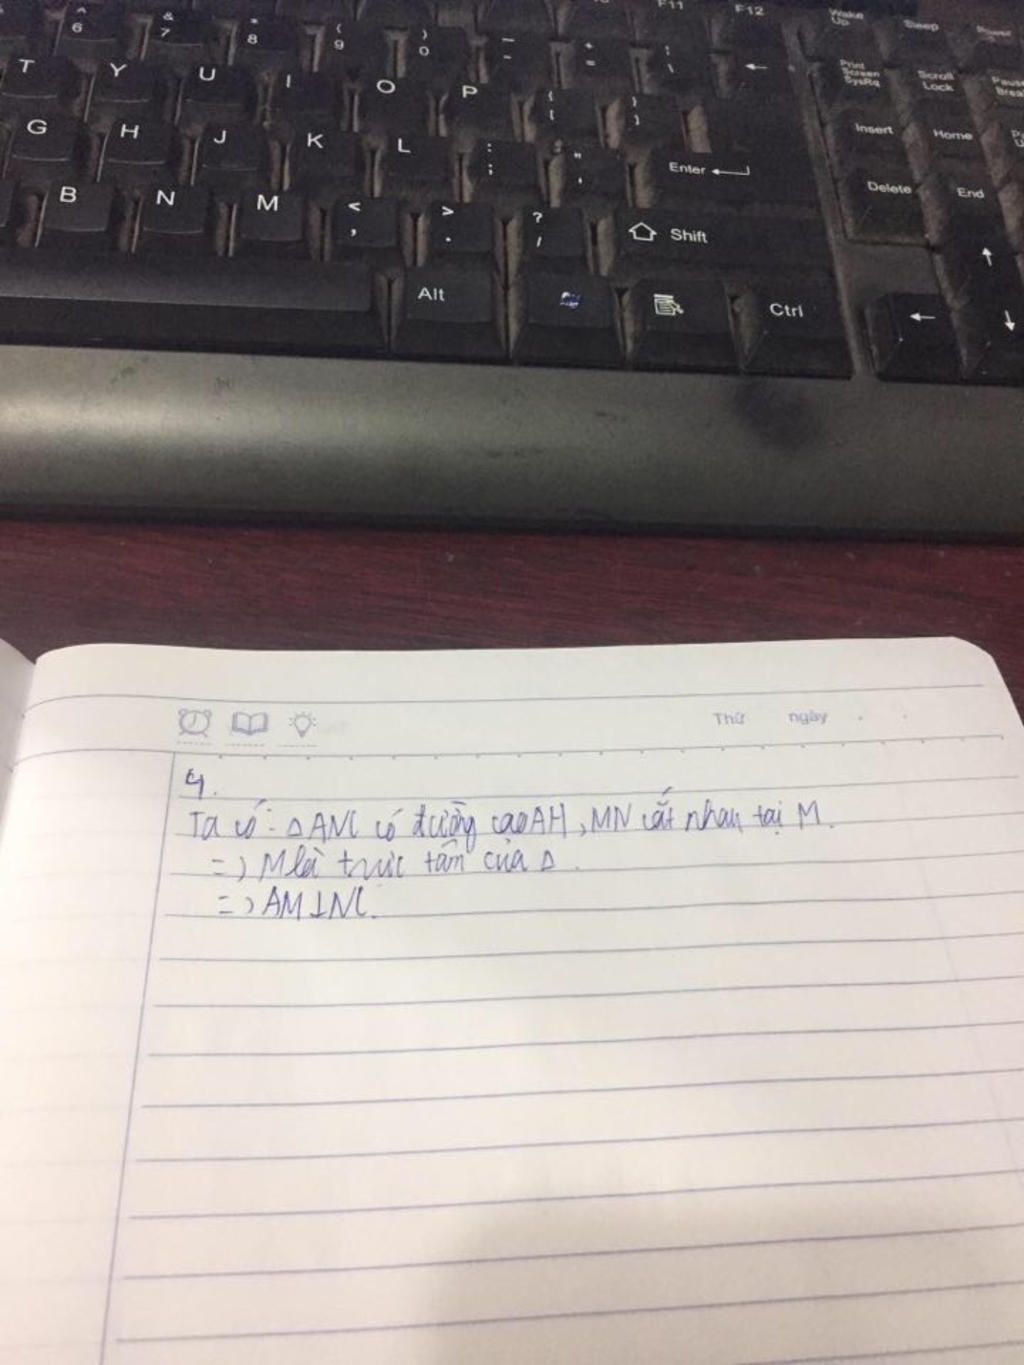 ^ 6 & 7 * 8 ( 9 ) 0 _ - + = | \ ← F11 F12 Wake Up Sleep Power
T Y U I O P { [ } ] Print Screen SysRq Scroll Lock Pause
G H J K L : ; " ' Enter Insert Home
B N M < , > . ? / Shift Delete End
Alt Ctrl ← ↑ ↓
Thứ ngày
4.
Ta có: △ANC có đường cao AH, MN cắt nhau tại M.
=> M là trực tâm của △.
=> AM⊥NC.